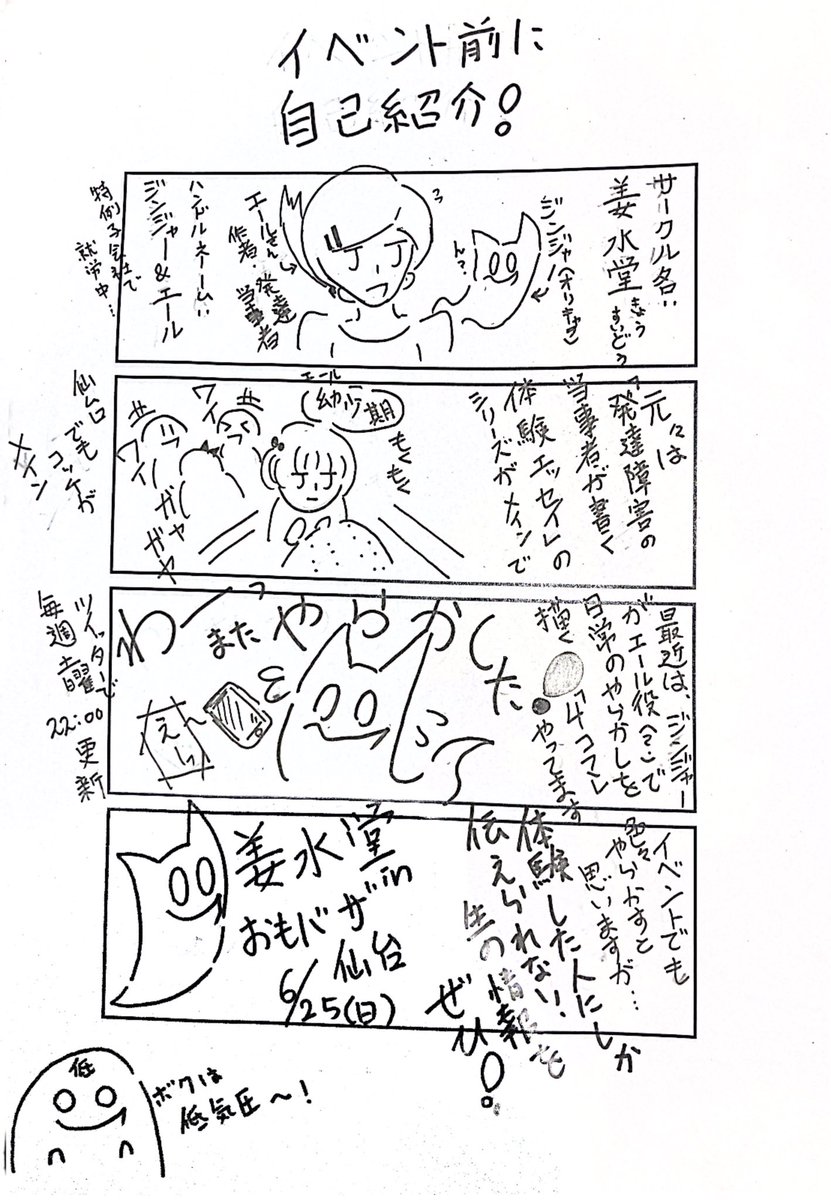 イベント前に
自己紹介!
サークル名:
姜水堂
きょう
すいどう
ジンジャー(オリキャラ)
ん?
エールさん
作者・発達
当事者
ハンドルネーム:
ジンジャー&エール
特例子会社で
就労中…
元々は
「発達障害の
当事者が書く
体験エッセイ」の
シリーズがメインで
エール
幼少期
もくもく
ワイ
ワイ
ガヤ
ガヤ
仙台
でも
コッチが
メイン
最近は、ジンジャー
がエール役(?)で
日常のやらかしを
描く
「4コマ」
やってます
わーっ
また
やらかした
えーっ
ツイッターで
毎週土曜
22:00更新
イベントでも
色々
やらかすと
思いますが…
体験した人にしか
伝えられない、
生の情報を
ぜひ!
姜水堂in
おもバザ
仙台
6/25(日)
低
ボクは
低気圧~!